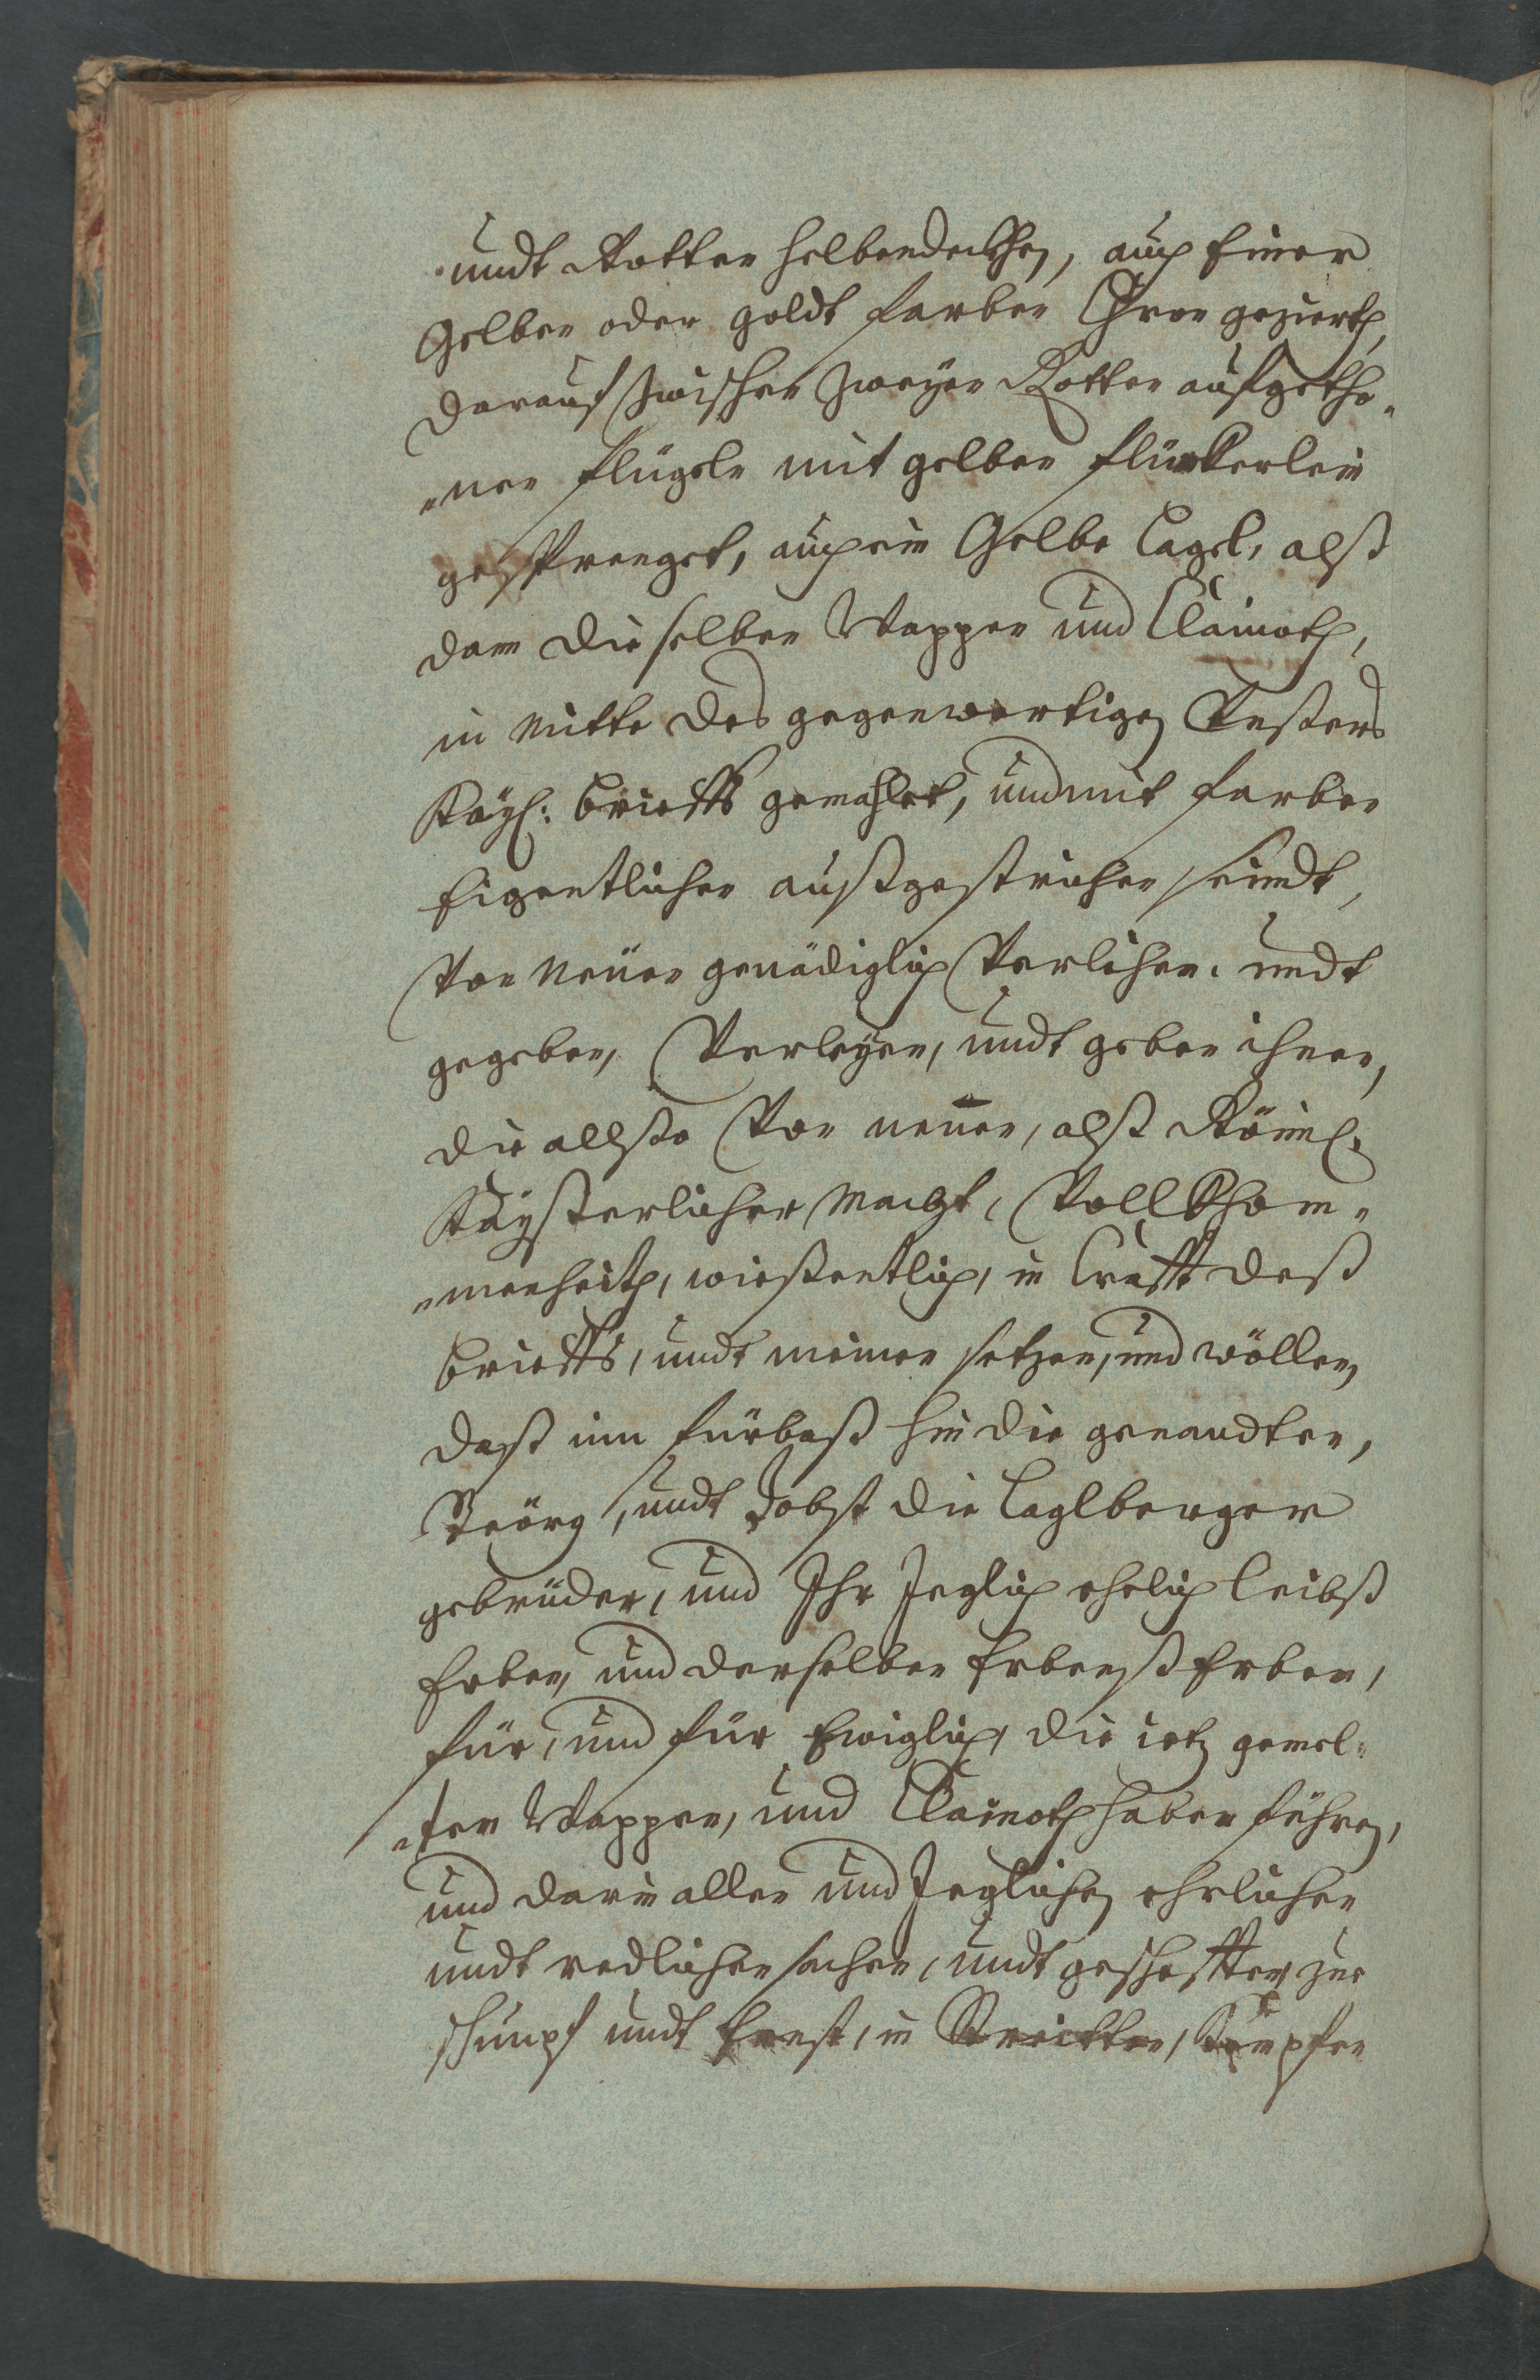 undt Rotten helbendeckhen, auch Einer
Gelben oder goldt farben Chron geziert,
darauf zwischen zweyen Rotten aufgetho„
„nen flügeln mit gelben flinckerlein
gesprenget, auch ein Gelbe Cagel, alß
dann die selben Wappen und Clainoth,
in mitte des gegenwertigen Unßers
Kayl: brieffs gemahlet, und mit farben
Eigentlichen außgestrichen seindt,
Von neuen genädiglich Verlihen. undt
gegeben, Verleyen, undt geben ihnen,
die allso Von neuen, alß Röml:
Kayßerlicher Macht, Vollkhom„
„menheith, wießentlich, in Crafft deß
brieffs, undt meinen setzen, und wöllen,
daß nun fürbaß hin die genandten,
Geörg, undt Jobst die Caglberger
gebrüder, und Ihr Jeglich ehelich leibß
Erben, und derselben Erbenß Erben,
für, und für Ewiglich, die ietz gemel„
„ten Wappen, und Clainoth haben führen,
und darin allen und Jeglichen ehrlichen
undt redlichen sachen, undt geschefften zue
schimpf undt Ernst, in Streitten, Kämpfen